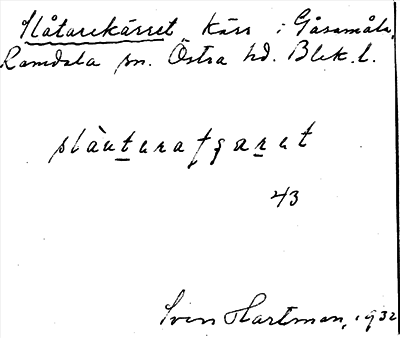 Slåtarekärret Kärr i Gåsamåla,
Ramdala sn. Östra hd. Blek. l.
43
Sven Hartman, 1932